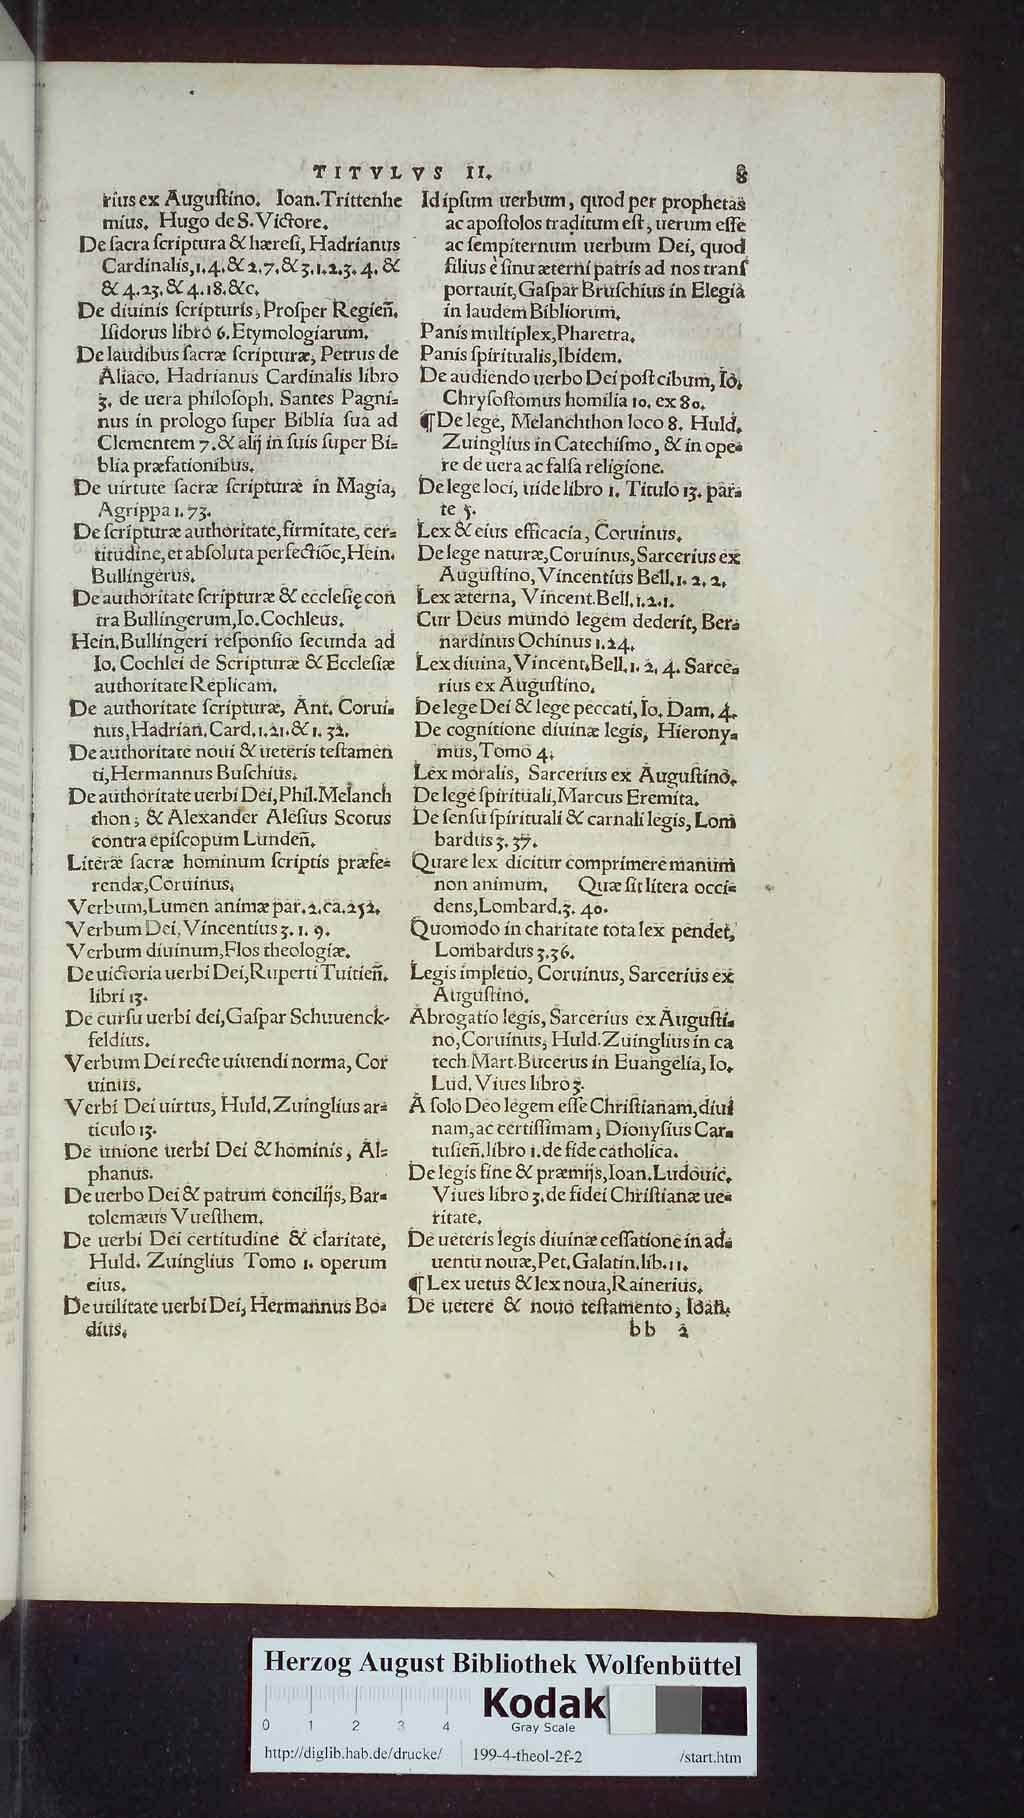 TITVLVS II. 8
rius ex Augustino. Ioan. Trittenhe
mius. Hugo de S. Victore.
De sacra scriptura & hæresi, Hadrianus
Cardinalis, 1. 4. & 2. 7. & 3. 1. 2. 3. 4. &
& 4. 23. & 4. 18. &c.
De diuinis scripturis, Prosper Regień.
Isidorus libro 6. Etymologiarum.
De laudibus sacræ scripturæ, Petrus de
Aliaco. Hadrianus Cardinalis libro
3. de uera philosoph. Santes Pagni=
nus in prologo super Biblia sua ad
Clementem 7. & alij in suis super Bi=
blia præfationibus.
De uirtute sacræ scripturæ in Magia,
Agrippa 1. 73.
De scripturæ authoritate, firmitate, cer=
titudine, et absoluta perfectiõe, Hein.
Bullingerus.
De authoritate scripturæ & ecclesię con
tra Bullingerum, Io. Cochleus.
Hein. Bullingeri responsio secunda ad
Io. Cochlei de Scripturæ & Ecclesiæ
authoritate Replicam.
De authoritate scripturæ, Ant. Corui=
nus, Hadrian. Card. 1. 21. & 1. 32.
De authoritate noui & ueteris testamen
ti, Hermannus Buschius.
De authoritate uerbi Dei, Phil. Melanch
thon; & Alexander Alesius Scotus
contra episcopum Lundeñ.
Literæ sacræ hominum scriptis præfe=
rendæ, Coruinus.
Verbum, Lumen animæ par. 2. ca. 252.
Verbum Dei, Vincentius 3. 1. 9.
Verbum diuinum, Flos theologiæ.
De uictoria uerbi Dei, Ruperti Tuitieñ.
libri 13.
De cursu uerbi dei, Gaspar Schuuenck-
feldius.
Verbum Dei recte uiuendi norma, Cor
uinus.
Verbi Dei uirtus, Huld. Zuinglius ar=
ticulo 13.
De unione uerbi Dei & hominis, Al=
phanus.
De uerbo Dei & patrum concilijs, Bar=
tolemæus Vuesthem.
De uerbi Dei certitudine & claritate,
Huld. Zuinglius Tomo 1. operum
eius.
De utilitate uerbi Dei, Hermannus Bo=
dius.
Id ipsum uerbum, quod per prophetas
ac apostolos traditum est, uerum esse
ac sempiternum uerbum Dei, quod
filius è sinu æterni patris ad nos trans
portauit, Gaspar Bruschius in Elegia
in laudem Bibliorum.
Panis multiplex, Pharetra.
Panis spiritualis, Ibidem.
De audiendo uerbo Dei post cibum, Io.
Chrysostomus homilia 10. ex 80.
¶ De lege, Melanchthon loco 8. Huld.
Zuinglius in Catechismo, & in ope=
re de uera ac falsa religione.
De lege loci, uide libro 1. Titulo 13. par=
te 5.
Lex & eius efficacia, Coruinus.
De lege naturæ, Coruinus, Sarcerius ex
Augustino, Vincentius Bell. 1. 2. 2.
Lex æterna, Vincent. Bell. 1. 2. 1.
Cur Deus mundo legem dederit, Ber=
nardinus Ochinus 1. 24.
Lex diuina, Vincent. Bell. 1. 2. 4. Sarce=
rius ex Augustino.
De lege Dei & lege peccati, Io. Dam. 4.
De cognitione diuinæ legis, Hierony=
mus, Tomo 4.
Lex moralis, Sarcerius ex Augustino.
De lege spirituali, Marcus Eremita.
De sensu spirituali & carnali legis, Lom
bardus 3. 37.
Quare lex dicitur comprimere manum
non animum. Quæ sit litera occi=
dens, Lombard. 3. 40.
Quomodo in charitate tota lex pendet,
Lombardus 3. 36.
Legis impletio, Coruinus, Sarcerius ex
Augustino.
Abrogatio legis, Sarcerius ex Augusti=
no, Coruinus, Huld. Zuinglius in ca
tech. Mart. Bucerus in Euangelia, Io.
Lud. Viues libro 3.
A solo Deo legem esse Christianam, diui
nam, ac certissimam, Dionysius Car=
tusieñ. libro 1. de fide catholica.
De legis fine & præmijs, Ioan. Ludouic.
Viues libro 3. de fidei Christianæ ue=
ritate.
De ueteris legis diuinæ cessatione in ad=
uentu nouæ, Pet. Galatin. lib. 11.
¶ Lex uetus & lex noua, Rainerius.
De uetere & nouo testamento, Ioan.
bb 2
Herzog August Bibliothek Wolfenbüttel
Kodak
Gray Scale
0 1 2 3 4
http://diglib.hab.de/drucke/ 199-4-theol-2f-2 /start.htm